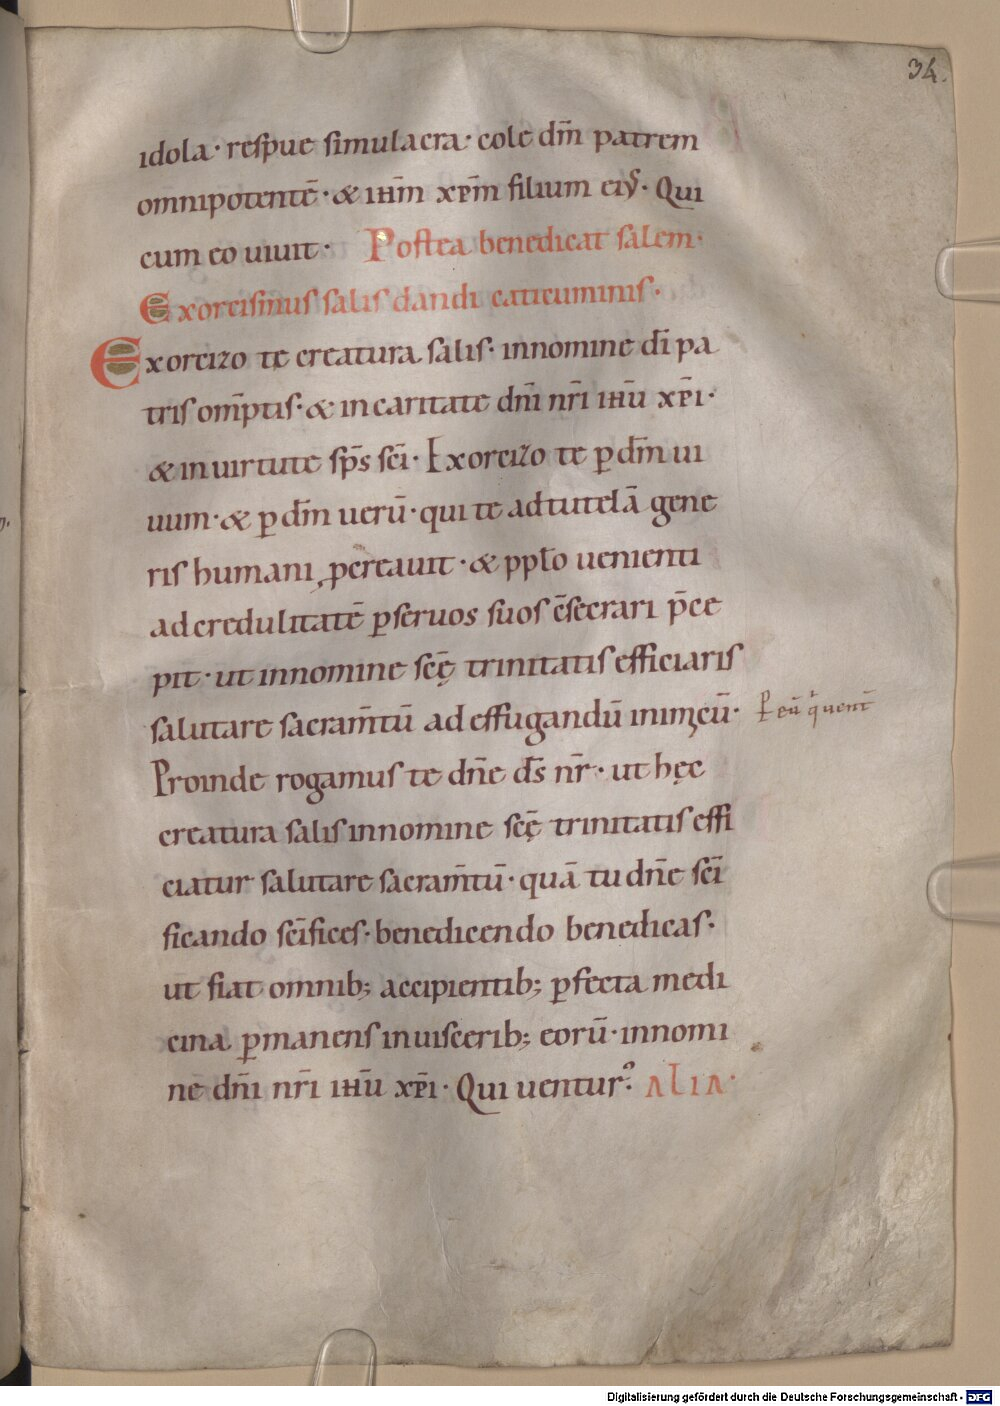 34.
idola· respue simulacra· cole dm̄ patrem
omnipotentē· & ihm̄ xp̄m filium eiꝰ· Qui
cum eo uiuit· Postea benedicat salem·
Exorcismus salis dandi caticuminis·
Exorcizo te creatura salis· innomine dī pa
tris om̄ptis· & incaritate dn̄i nr̄i ihū xp̄i·
& inuirtute sp̄s sc̄i· Exorcizo te ꝑ dm̄ ui
uum· & ꝑ dm̄ uerū· qui te adtutelā gene
ris humani ꝓcreauit· & ppl̄o uenienti
adcredulitatē ꝑseruos suos c̄secrari p̄ce
pit· ut innomine sc̄ę trinitatis efficiaris
salutare sacram̄tū ad effugandū inimicū·
ꝑ eū qͥ uent̄
Proinde rogamus te dn̄e ds̄ nr̄· ut hęc
creatura salis innomine sc̄ę trinitatis effi
ciatur salutare sacram̄tū· quā tu dn̄e sc̄i
ficando sc̄ifices· benedicendo benedicas·
ut fiat omnib; accipientib; ꝑfecta medi
cina ꝑmanens inuiscerib; eorū· innomi
ne dn̄i nr̄i ihū xp̄i· Qui uentur᷒· ALIA·
Digitalisierung gefördert durch die Deutsche Forschungsgemeinschaft - DFG